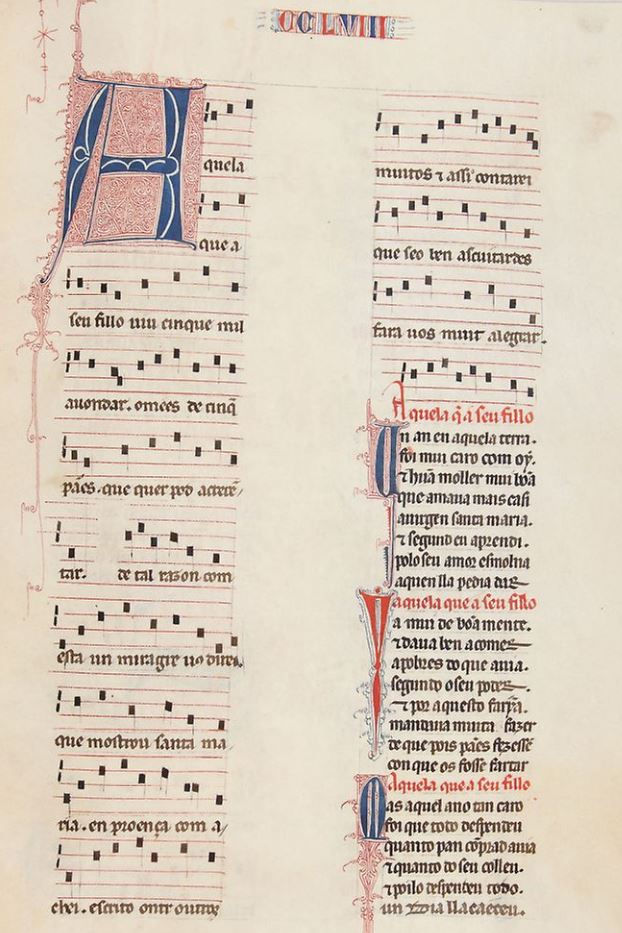 CCLVIII
Aquela
que a
seu fillo uiu cinque mil
auondar. omees de cinq̃
pães. que quer pod acrecẽ/
tar. de tal razon com
esta un miragre uos direi.
que mostrou santa ma
ria. en proença com a/
chei. escrito ontr outros
muitos ⁊ assi contarei
que seo ben ascuitardes
fara uos muit alegrar.
Aquela q̃ a seu fillo
Un an en aquela terra.
foi mui caro com oý.
⁊ hũa moller mui bõa
que amaua mais casi
a uirgen santa maria.
⁊ segund eu aprendi.
polo seu amor esmolna
a quen lla pedia dar
Aquela que a seu fillo
a mui de bõa mente.
⁊ daua ben a comer
a pobres do que auia.
segundo o seu poder
⁊ por aquesto farỹa.
mandaua muita fazer
de que pois pães fezesse
con que os fosse fartar
Aquela que a seu fillo
Mas aquel ano tan caro
foi que todo despendeu
quanto pan cõprad auia
⁊ quanto do seu colleu.
⁊ poilo despendeu todo.
un dia lla caeceu.